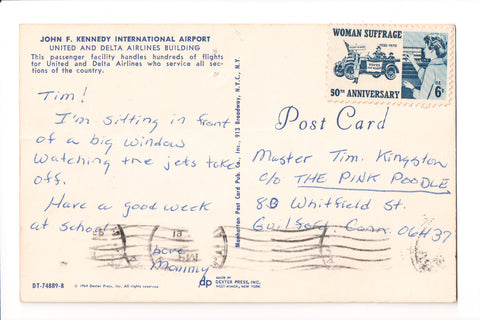 JOHN F. KENNEDY INTERNATIONAL AIRPORT
UNITED AND DELTA AIRLINES BUILDING
This passenger facility handles hundreds of flights
for United and Delta Airlines who service all sec-
tions of the country.
Tim!
I'm sitting in front
of a big window
watching the jets take
off.
Have a good week
at school.
Love
Mommy
DT-74889-B
© 1969 Dexter Press, Inc.
dp
MADE BY
DEXTER PRESS, INC.
WEST NYACK, NEW YORK
Manhattan Post Card Pub. Co., Inc., 913 Broadway, N.Y.C., N.Y.
WOMAN SUFFRAGE
50th ANNIVERSARY
U.S.
6c
Post Card
Master Tim Kingston
c/o THE PINK POODLE
80 Whitfield St.
Guilford Conn. 06437